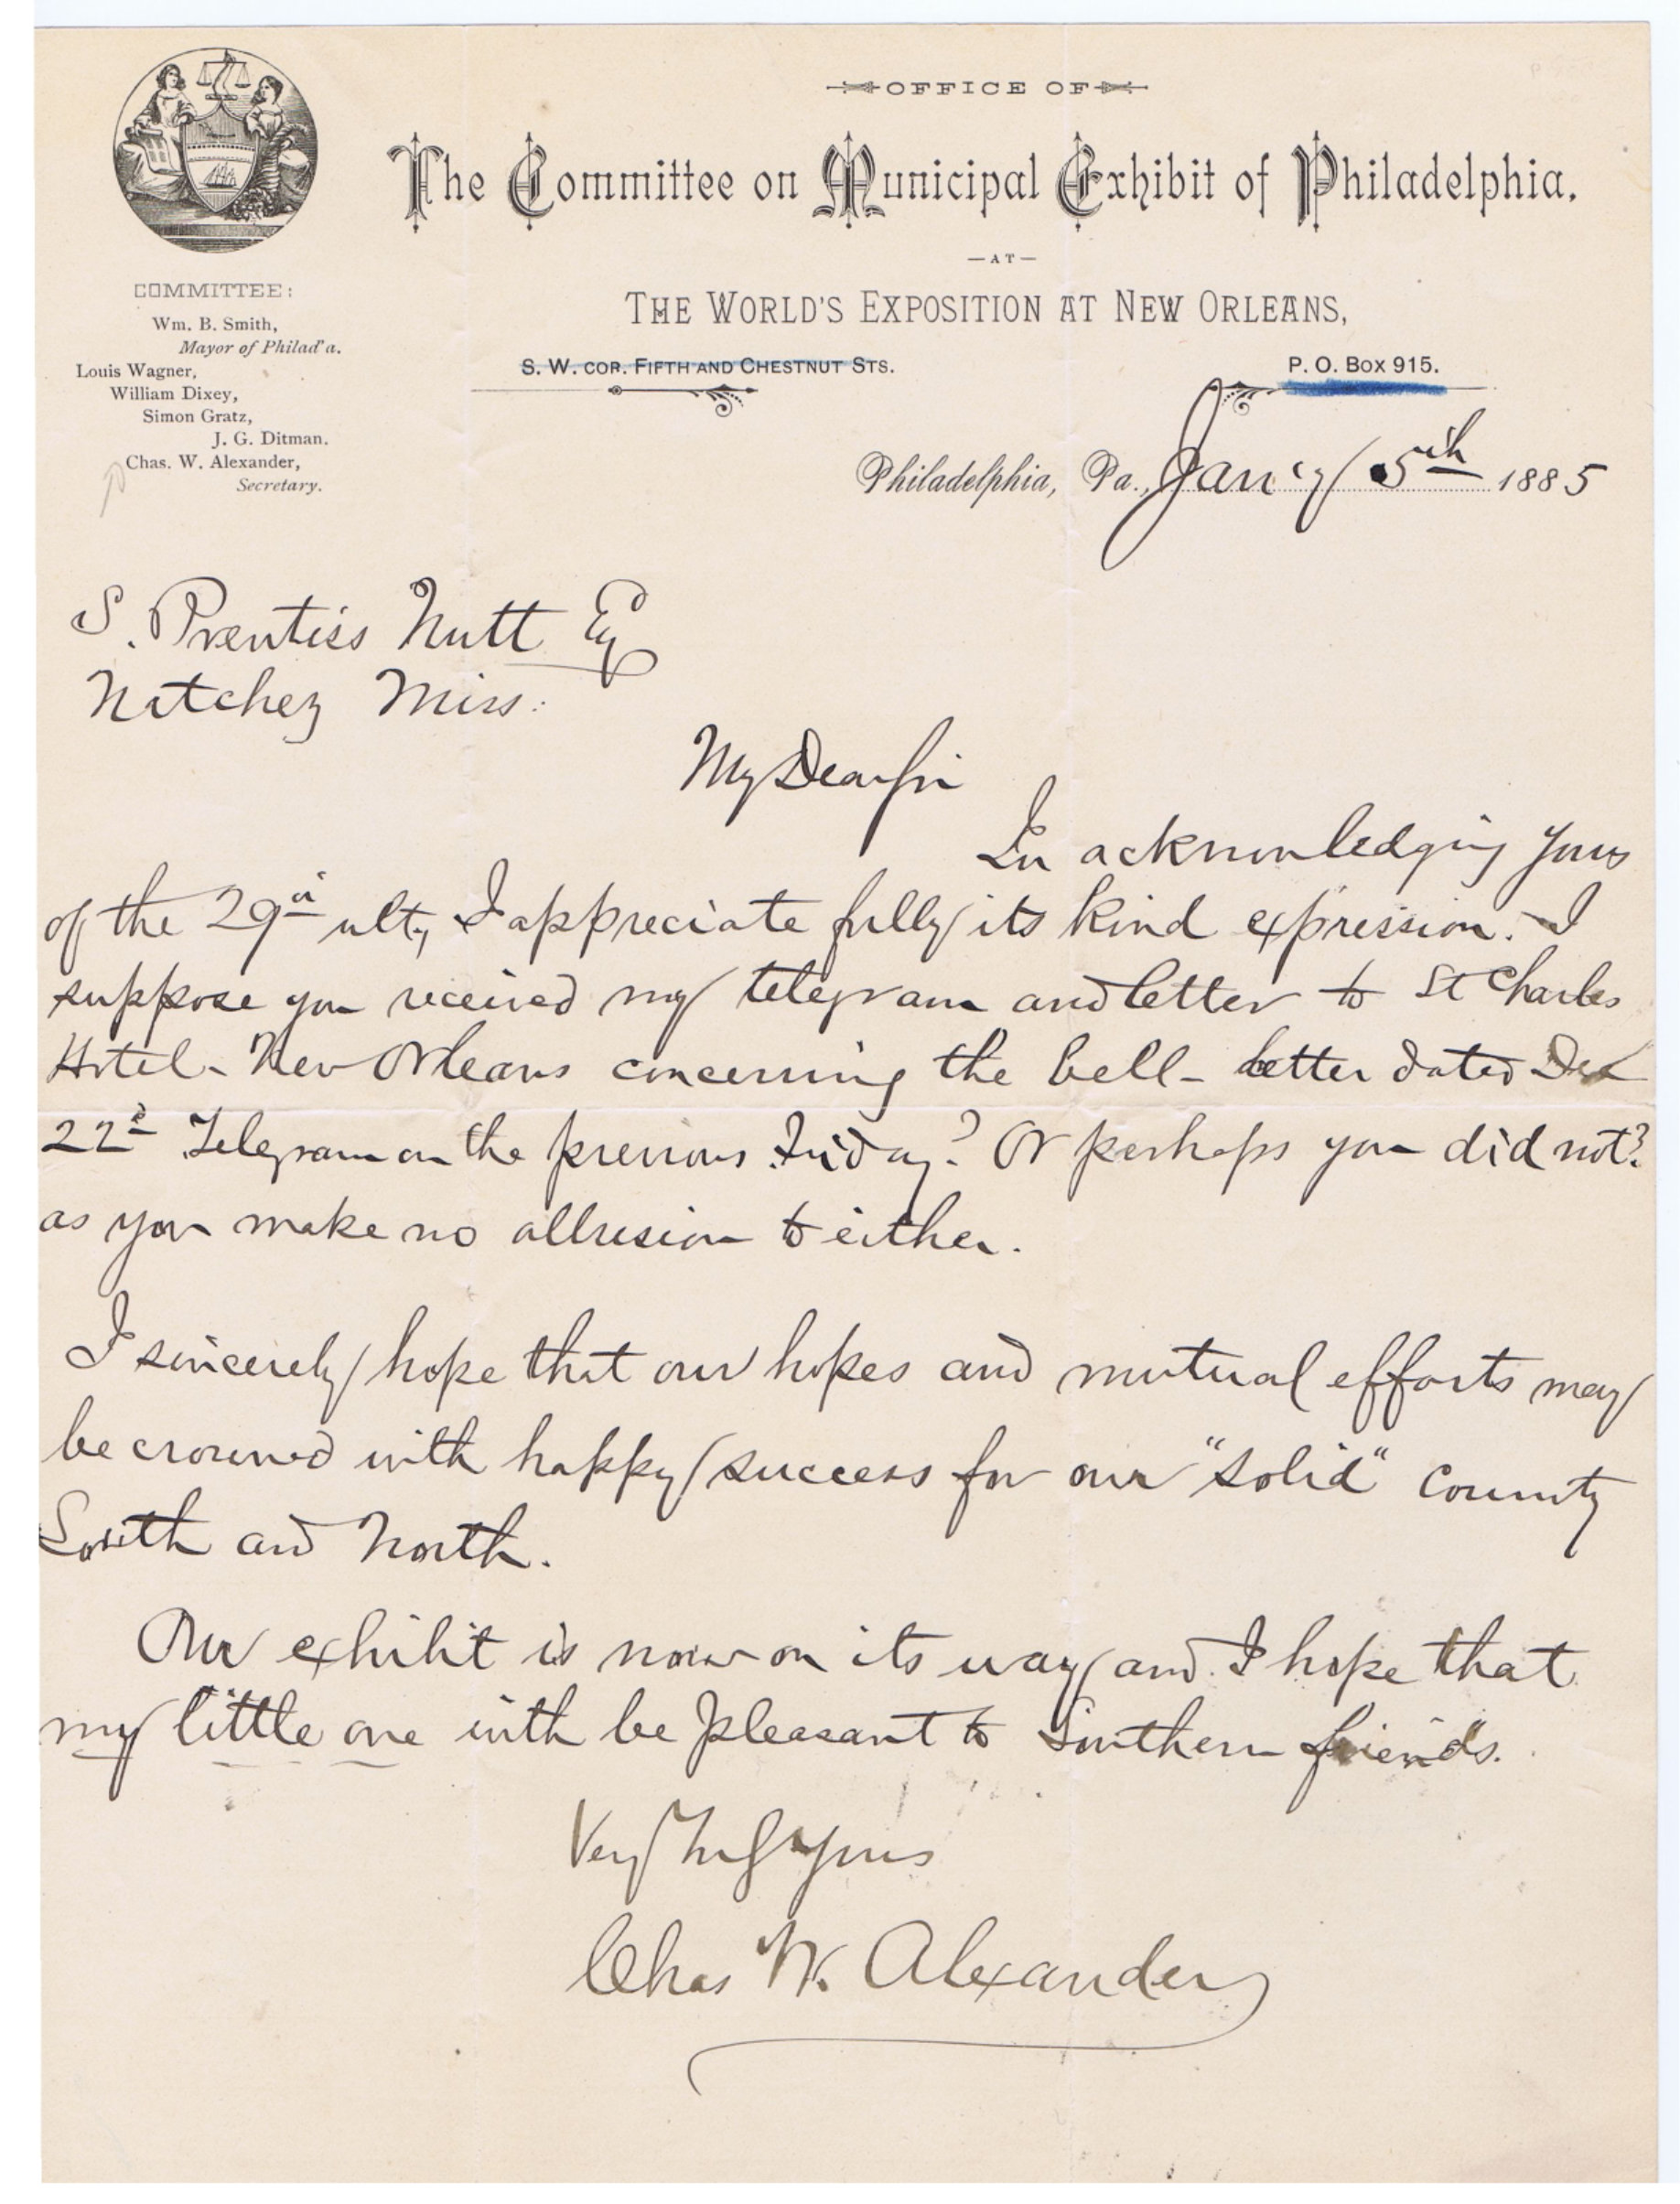 OFFICE OF
The Committee on Municipal Exhibit of Philadelphia,
—AT—
THE WORLD'S EXPOSITION AT NEW ORLEANS,
S. W. COR. FIFTH AND CHESTNUT STS.
P. O. BOX 915.
COMMITTEE:
Wm. B. Smith,
Mayor of Philad'a.
Louis Wagner,
William Dixey,
Simon Gratz,
J. G. Ditman.
Chas. W. Alexander,
Secretary.
Philadelphia, Pa., Jan'y 5th 1885
S. Prentiss Nutt Esq
Natchez Miss:
My Dear Sir
In acknowledging yours
of the 29th ult, I appreciate fully its kind expression. I
suppose you received my telegram and letter to St Charles
Hotel - New Orleans concerning the bell - letter dated Dec
22d Telegram on the previous Friday? Or perhaps you did not?
as you make no allusion to either.
I sincerely hope that our hopes and mutual efforts may
be crowned with happy success for our "solid" county
South and North.
Our exhibit is now on its way and I hope that
my little one with be pleasant to Southern friends.
Very Truly yours
Chas W. Alexander